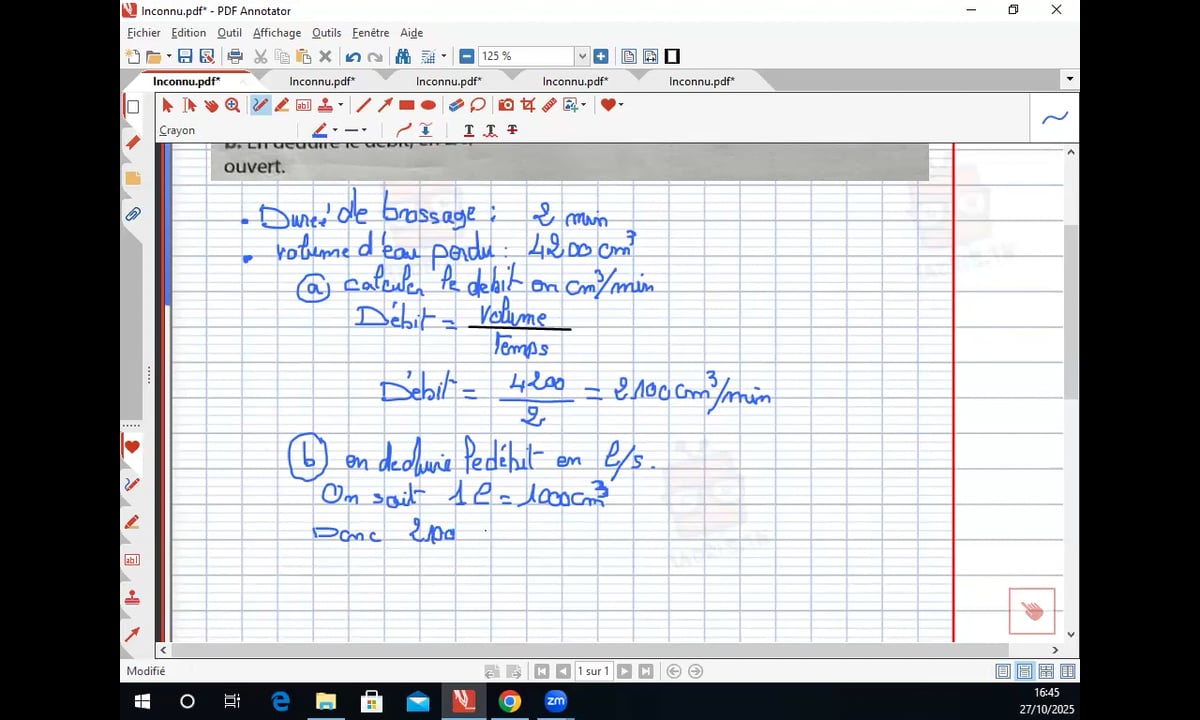 Inconnu.pdf* - PDF Annotator
Fichier Edition Outil Affichage Outils Fenêtre Aide
125 %
Inconnu.pdf* Inconnu.pdf* Inconnu.pdf* Inconnu.pdf* Inconnu.pdf*
Crayon
ouvert.
• Dureé de brossage : 2 min
• volume d'eau perdu : 4200 cm³
(a) calculer le debit en cm³/min
Débit = Volume
Temps
Débit = 4200 = 2100 cm³/min
2
(b) en deduire le débit en l/s.
On sait 1 l = 1000 cm³
Donc 2100
Modifié
1 sur 1
16:45
27/10/2025